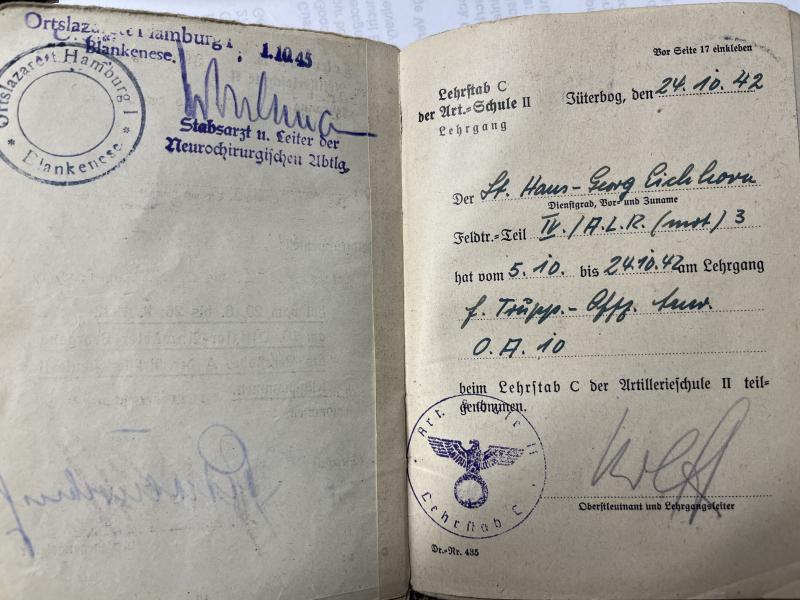 Ortslazarett Hamburg I
Blankenese.
1.10.45
Ortslazarett Hamburg 1
* Blankenese. *
Stabsarzt u. Leiter der
Neurochirurgischen Abtlg.
Vor Seite 17 einkleben
Lehrstab C
der Art.-Schule II
Lehrgang
Jüterbog, den 24.10.42
Der Lt. Hans-Georg Eichhorn
Dienstgrad, Vor- und Zuname
Feldtr.-Teil IV./A.L.R. (mot) 3
hat vom 5.10. bis 24.10.42 am Lehrgang
f. Trupp.-Offz. Anw.
O.A. 10
beim Lehrstab C der Artillerieschule II teil-
genommen.
Art. Schule II
Lehrstab C
Wolff
Oberstleutnant und Lehrgangsleiter
Dr.-Nr. 435